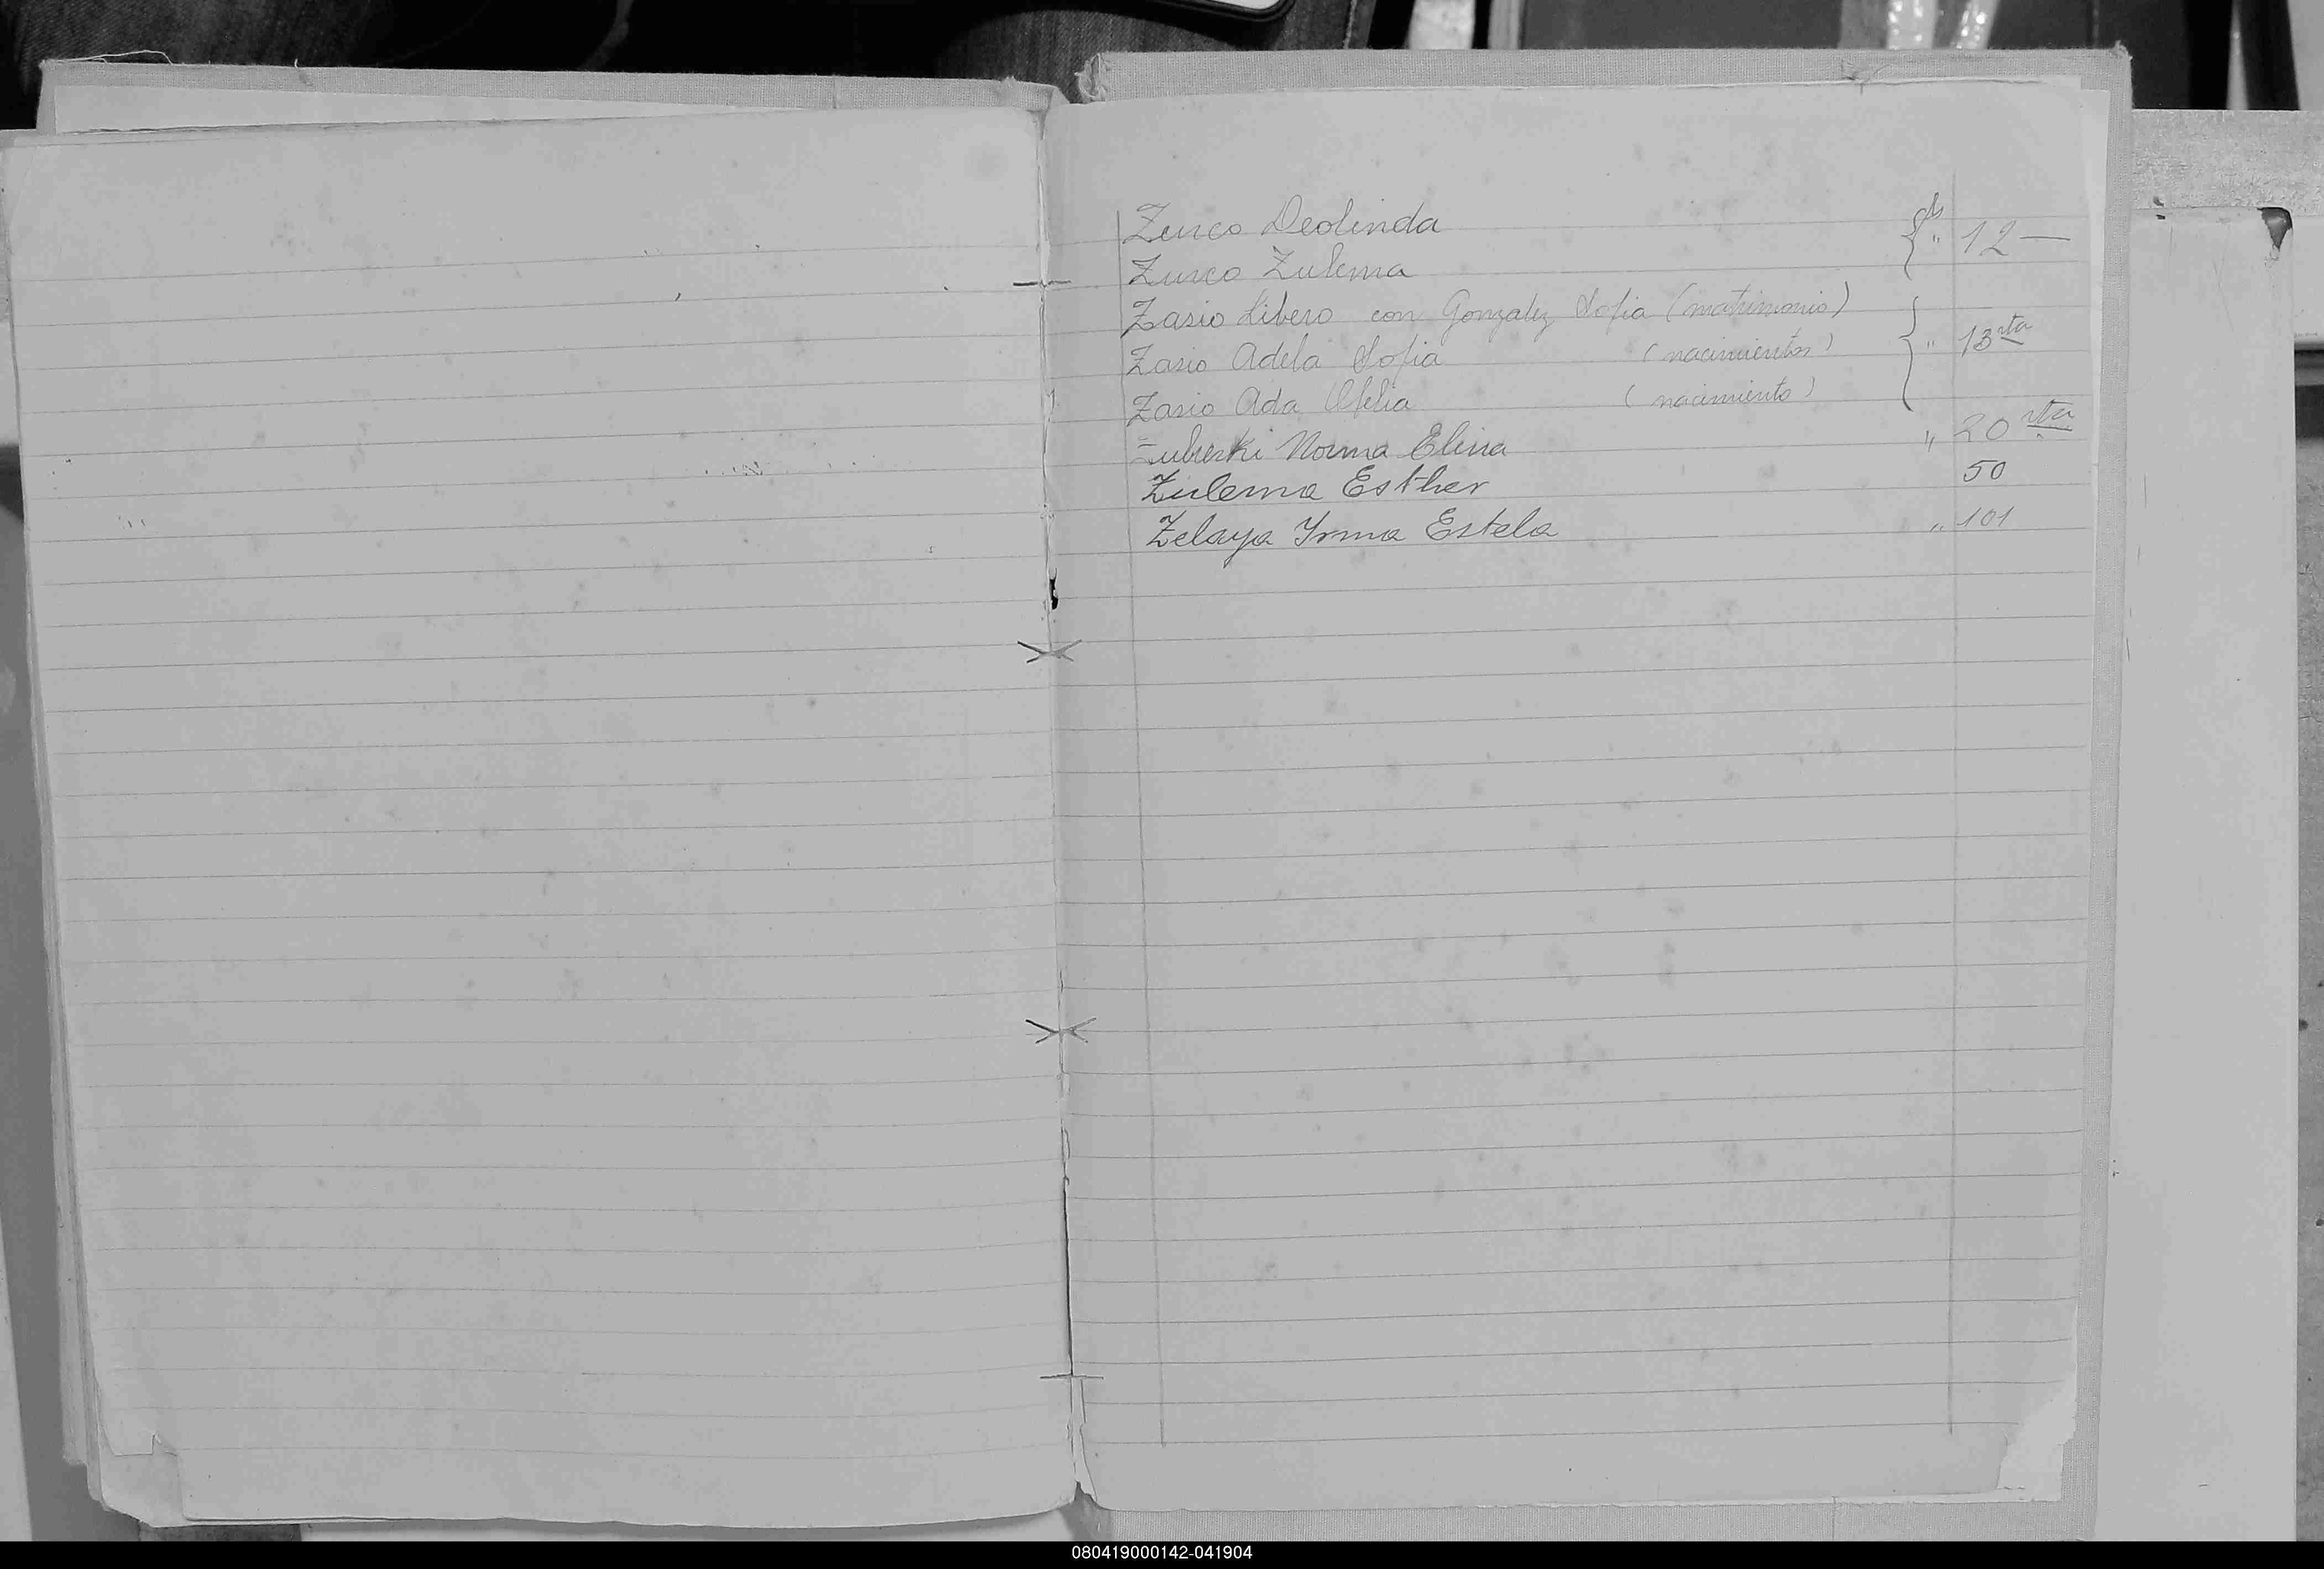 Zurco Deolinda
Zurco Zulema } " 12 —
Zasio Libero con Gonzalez Sofia (matrimonio)
Zasio Adela Sofia (nacimientos) } " 13 vta
Zasio Ada Ofelia (nacimiento)
Norma Elina " 20 vta
Zulema Esther 50
Zelaya Yrma Estela " 101
080419000142-041904